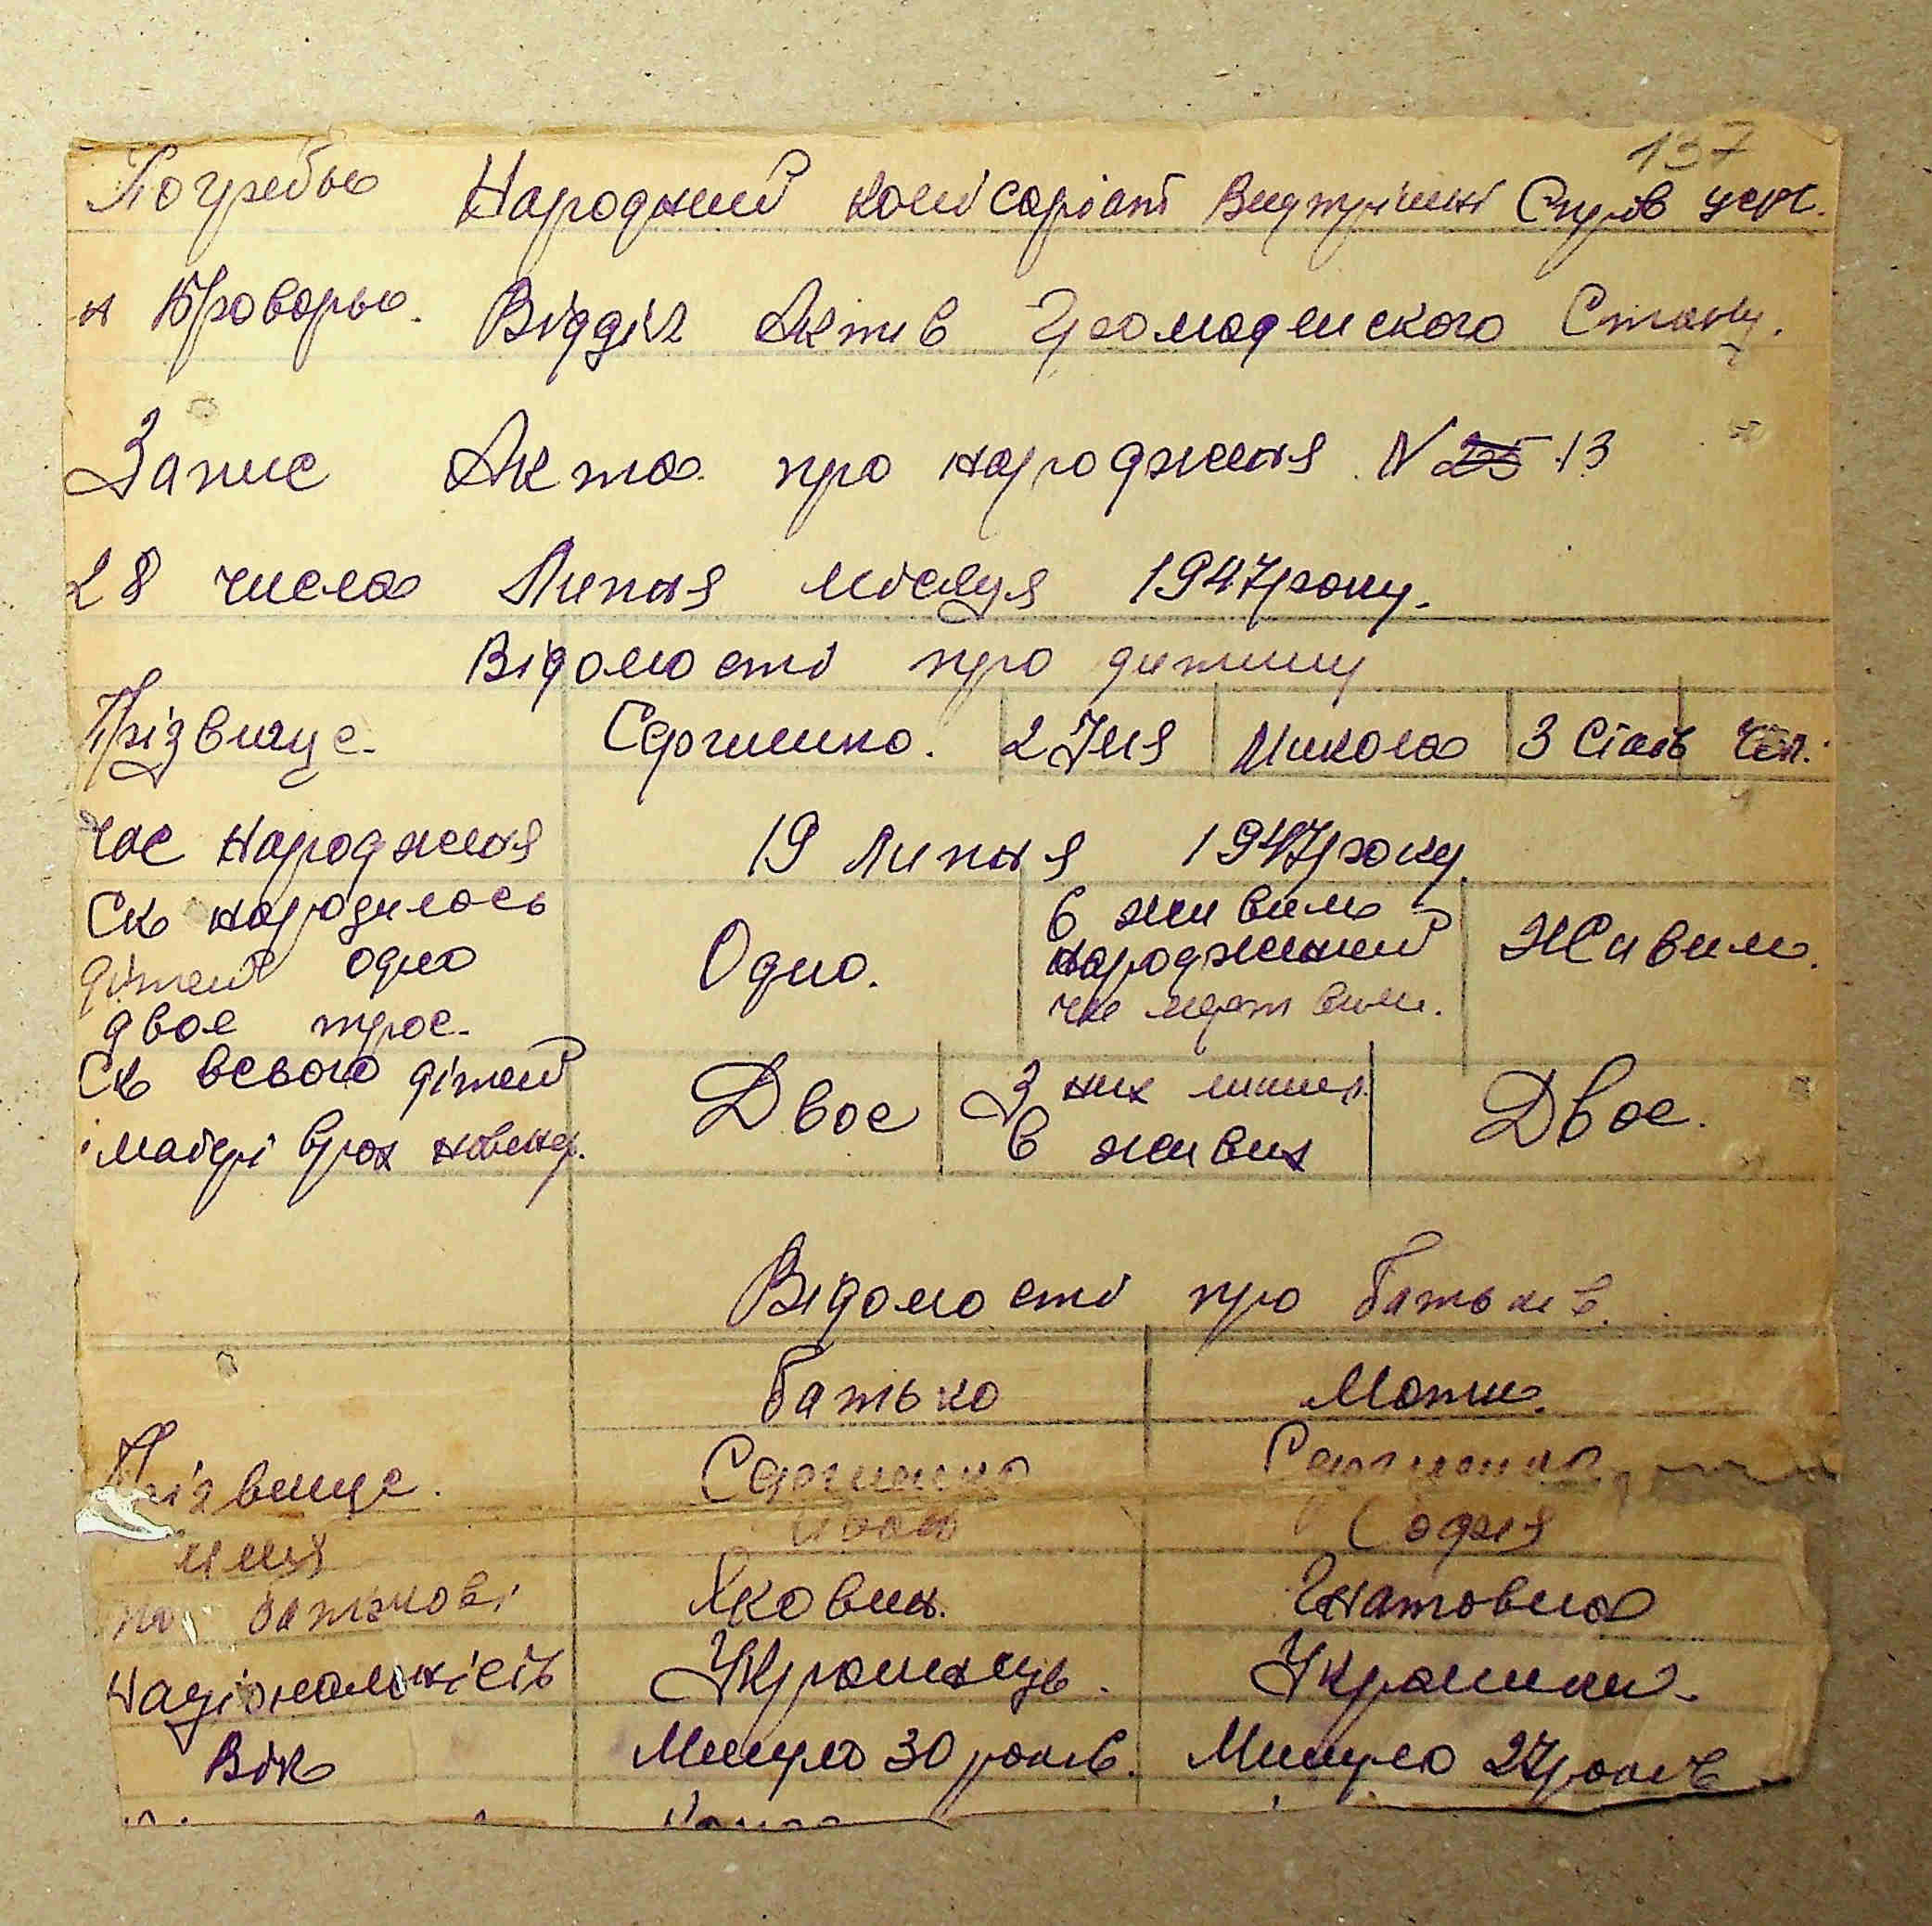 137
Погребы Народний комісаріат Внутрішні Справ УСРС.
н Бровары. Відділ Актів Громадянского Стану.
Запис Акта про народження N 25 13
28 числа Липня місяця 1947 року.
Відомості про дитину
Прізвище. Сергиенко. 2 Імя Микола 3 Стать Чол.
Час народження 19 Липня 1947 року.
Ск народилось дітей одно двое трое. Одно. Живим народжений чи мертвим. Живим.
Ск всього дітей Двое З них лишил. Двое.
матері в живих
Відомості про батьків.
батько Мати.
Прізвище. Сергиенко Сергиенко
имя Иван София
по батькові Якович. Гнатовна
Національність Украинець. Украинка.
Вік Минуло 30 років. Минуло 27 років